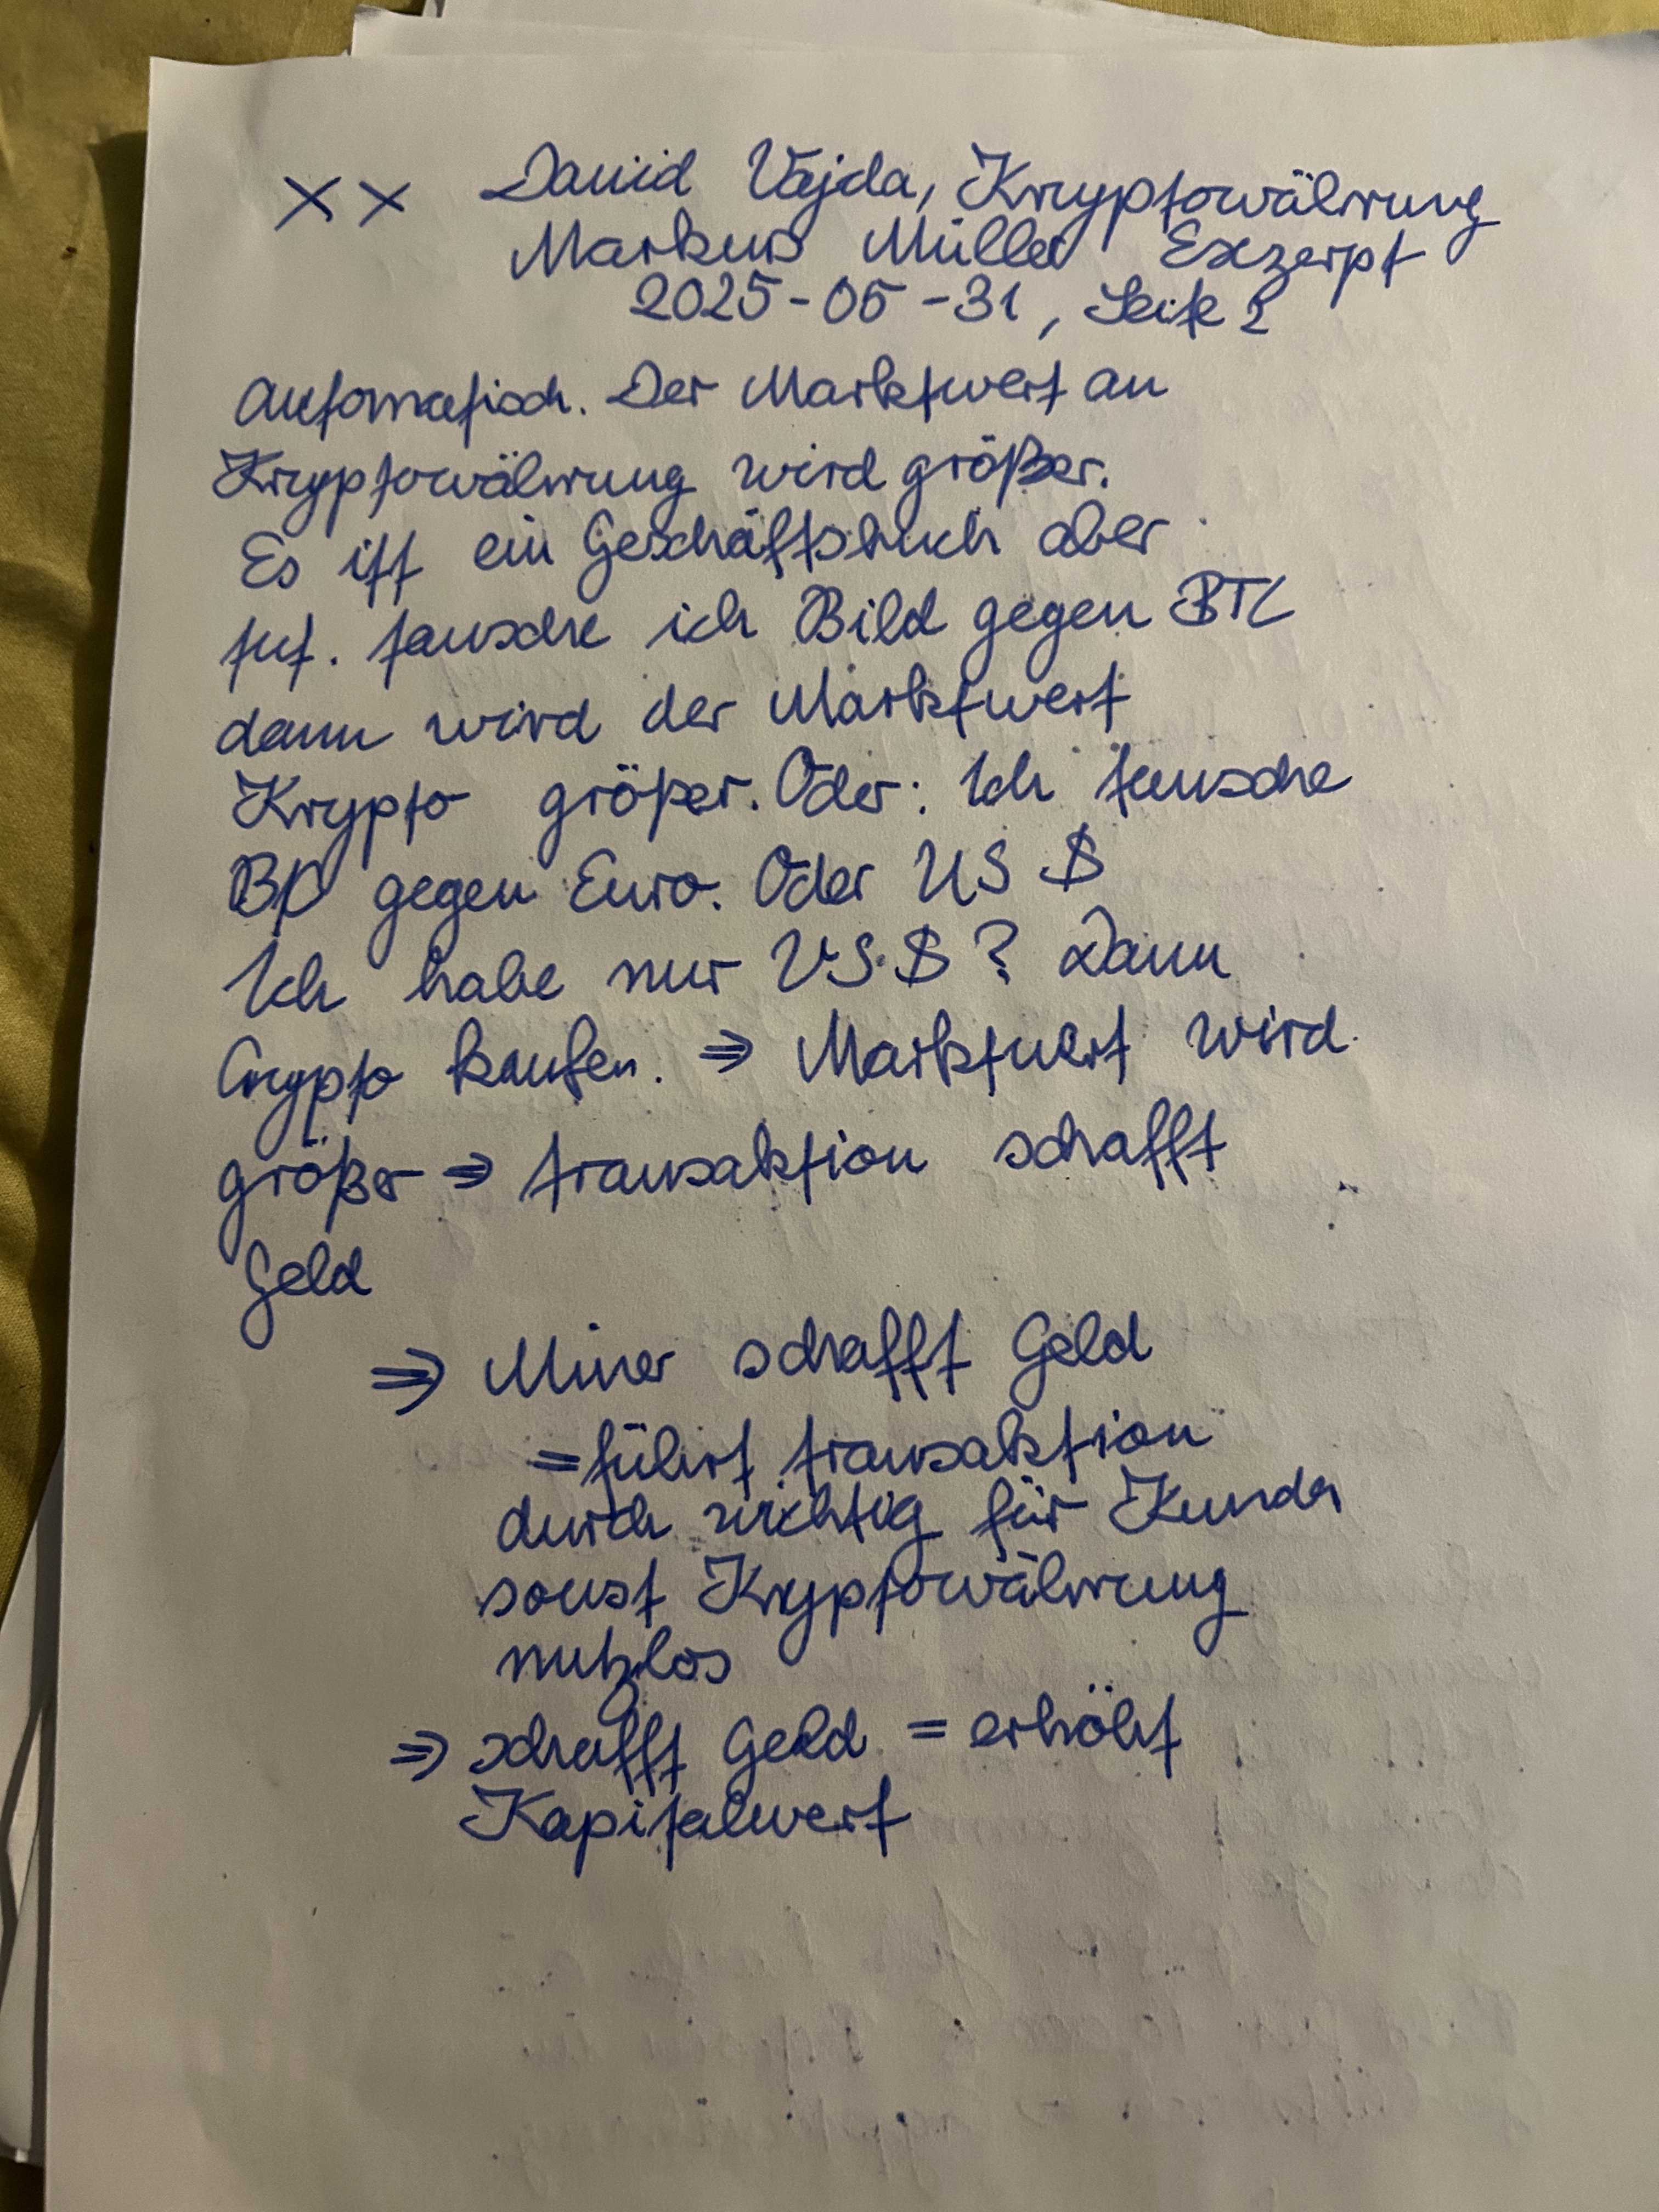 XX David Vajda, Kryptowährung
Markus Müller Exzerpt
2025-05-31, Seite 2
automatisch. Der Marktwert an
Kryptowährung wird größer.
Es ist ein Geschäftsbuch aber
tut. tausche ich Bild gegen BTC
dann wird der Marktwert
Krypto größer. Oder: Ich tausche
gegen Euro. Oder US $
Ich habe nur US $? Dann
Crypto kaufen. ⇒ Marktwert wird
größer ⇒ transaktion schafft
Geld
⇒ Miner schafft Geld
= führt transaktion
durch wichtig für Kunden
sonst Kryptowährung
nutzlos
⇒ schafft Geld = erhöht
Kapitalwert